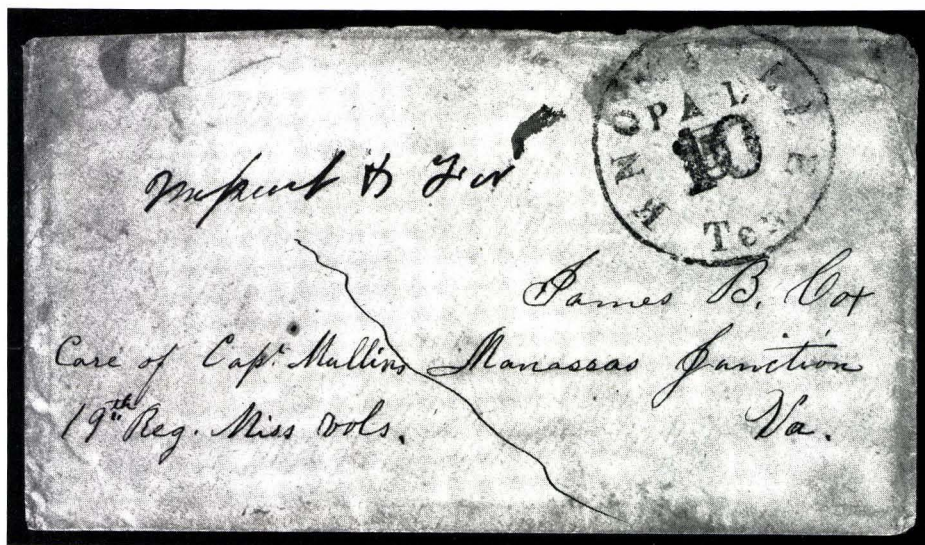 KNOXVILLE
PAID
10
Ten
Missent & For
James B. Cox
Care of Capt. Mullins Manassas Junction
19th Reg. Miss Vols. Va.